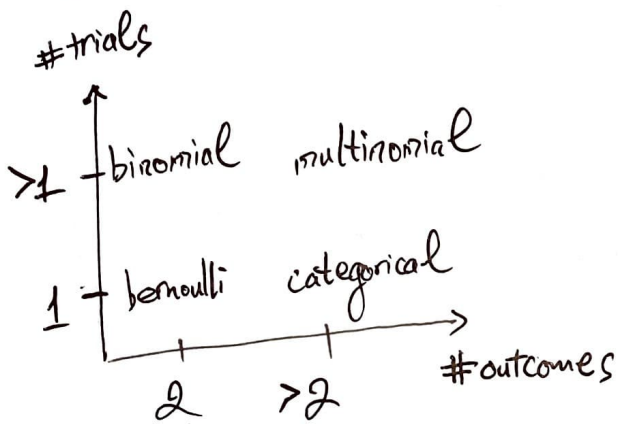 #trials
>1 binomial multinomial
1 bernoulli categorical
#outcomes
2 >2